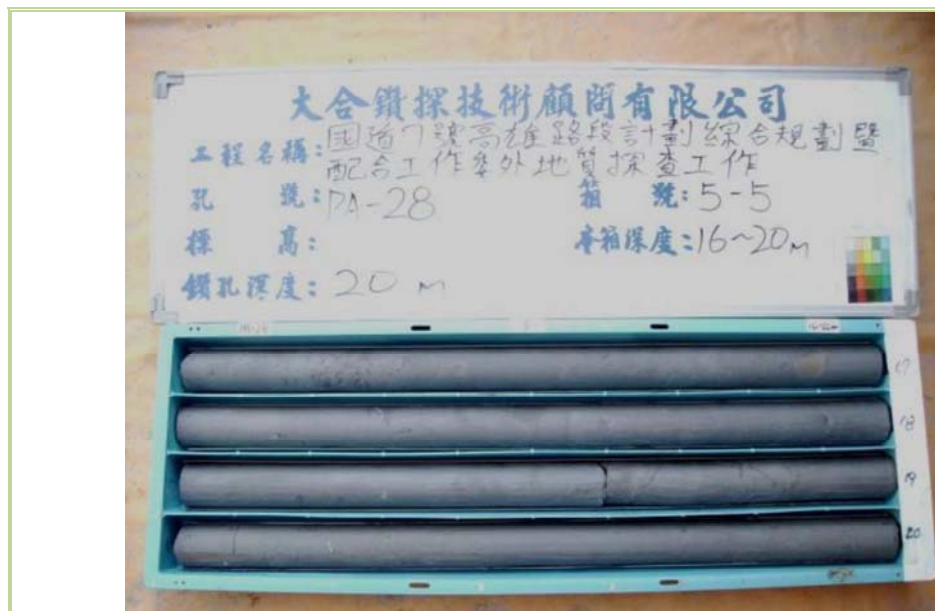 大合鑽探技術顧問有限公司
工程名稱:國道7號高雄路段計劃綜合規劃暨
配合工作委外地質探查工作
孔號:PA-28 箱號:5-5
標高: 本箱深度:16~20M
鑽孔深度:20 M
17
18
19
20